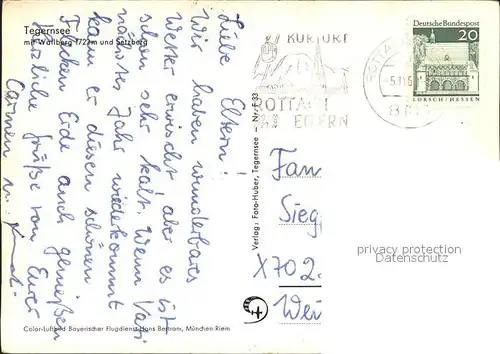 Tegernsee
mit Wallberg 1722m und Setzberg
Liebe Eltern!
Wir haben wunderbares
Wetter erwischt aber es ist
schon sehr kalt. Wenn Vati
nächstes Jahr wiederkommt
kann er diesen schönen
Erde auch genießen
Herzliche Grüße von Eurer
Carmen u.
Color-Luftbild Bayerischer Flugdienst Hans Bertram, München Riem
Verlag: Foto-Huber, Tegernsee – Nr. F 33
KURORT
ROTTACH
EGERN
Deutsche Bundespost
20
LORSCH/HESSEN
Fam
Siegf
X702
Wei
privacy protection
Datenschutz